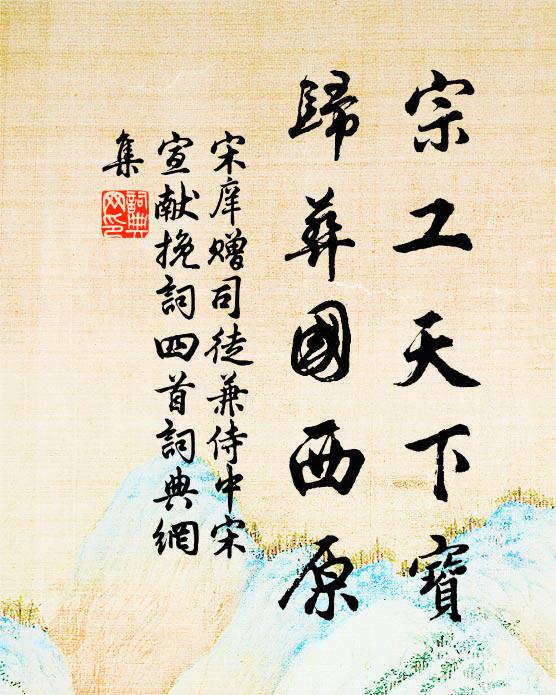 宗工天下寶
歸葬國西原
宋庠贈司徒兼侍中宋
宣献挽詞四首詞典網
集
詞典
网印